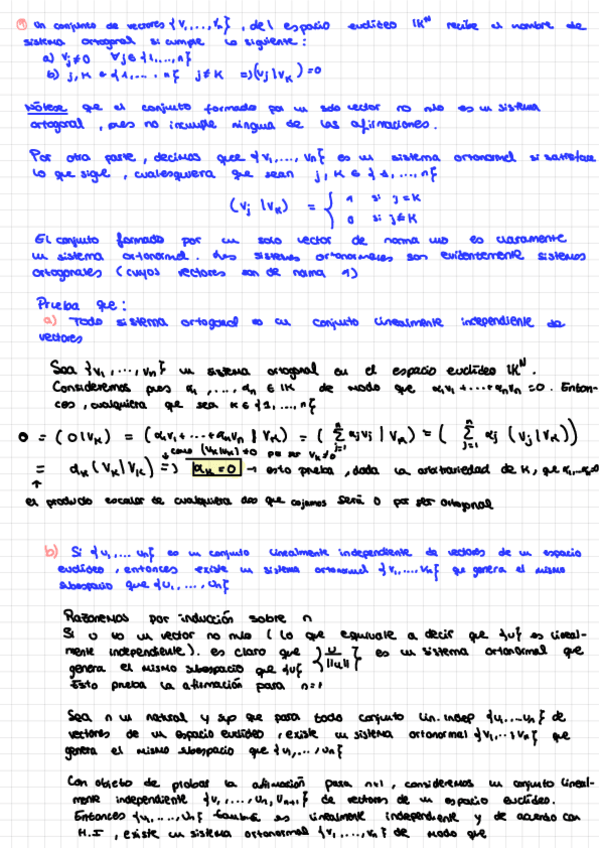 9) Un conjunto de vectores {v₁,...,vₙ}, del espacio euclídeo IKᴺ recibe el nombre de
sistema ortogonal si cumple lo siguiente:
a) vⱼ≠0 ∀j∈{1,...,n}
b) j,k ∈ {1,....n} j≠k =>(vⱼ|vₖ)=0
Nótese que el conjunto formado por un solo vector no nulo es un sistema
ortogonal, pues no incumple ninguna de las afirmaciones.
Por otra parte, decimos que {v₁,...,vₙ} es un sistema ortonormal si satisface
lo que sigue, cualesquiera que sean j,k ∈ {1,...,n}
(vⱼ|vₖ) = { 1 si j=k
0 si j≠k
El conjunto formado por un solo vector de norma uno es claramente
un sistema ortonormal. Los sistemas ortonormales son evidentemente sistemas
ortogonales (cuyos vectores son de norma 1)
Prueba que:
a) Todo sistema ortogonal es un conjunto linealmente independiente de
vectores
Sea {v₁,...,vₙ} un sistema ortogonal en el espacio euclídeo IKᴺ.
Consideremos pues α₁,...,αₙ ∈ IK de modo que α₁v₁+...+αₙvₙ=0. Enton-
ces, cualquiera que sea k∈{1,...,n}
0 = (0|vₖ) = (α₁v₁+...+αₙvₙ|vₖ) = (∑ⱼ₌₁ⁿ αⱼvⱼ|vₖ) = (∑ⱼ₌₁ⁿ αⱼ (vⱼ|vₖ))
como (vₖ|vₖ)≠0 por ser vₖ≠0
= αₖ(vₖ|vₖ) => αₖ=0 → esto prueba, dada la arbitrariedad de k, que α₁...αₙ=0
↑
el producto escalar de cualquiera dos que cojamos será 0 por ser ortogonal
b) Si {u₁,...uₙ} es un conjunto linealmente independiente de vectores de un espacio
euclídeo, entonces existe un sistema ortonormal {v₁,...,vₙ} que genera el mismo
subespacio que {u₁,...,uₙ}
Razonemos por inducción sobre n
Si u es un vector no nulo (lo que equivale a decir que {u} es lineal-
mente independiente). es claro que {u/||u||} es un sistema ortonormal que
genera el mismo subespacio que {u}
Esto prueba la afirmación para n=1
Sea n un natural y sup que para todo conjunto lin. indep {u₁...uₙ} de
vectores de un espacio euclídeo, existe un sistema ortonormal {v₁,..,vₙ} que
genera el mismo subespacio que {u₁,...,uₙ}
Con objeto de probar la afirmación para n+1, consideremos un conjunto lineal-
mente independiente {u₁,...,uₙ,uₙ₊₁} de vectores de un espacio euclídeo.
Entonces {u₁,...,uₙ} también es linealmente independiente y de acuerdo con
H.I, existe un sistema ortonormal {v₁,...,vₙ} de modo que